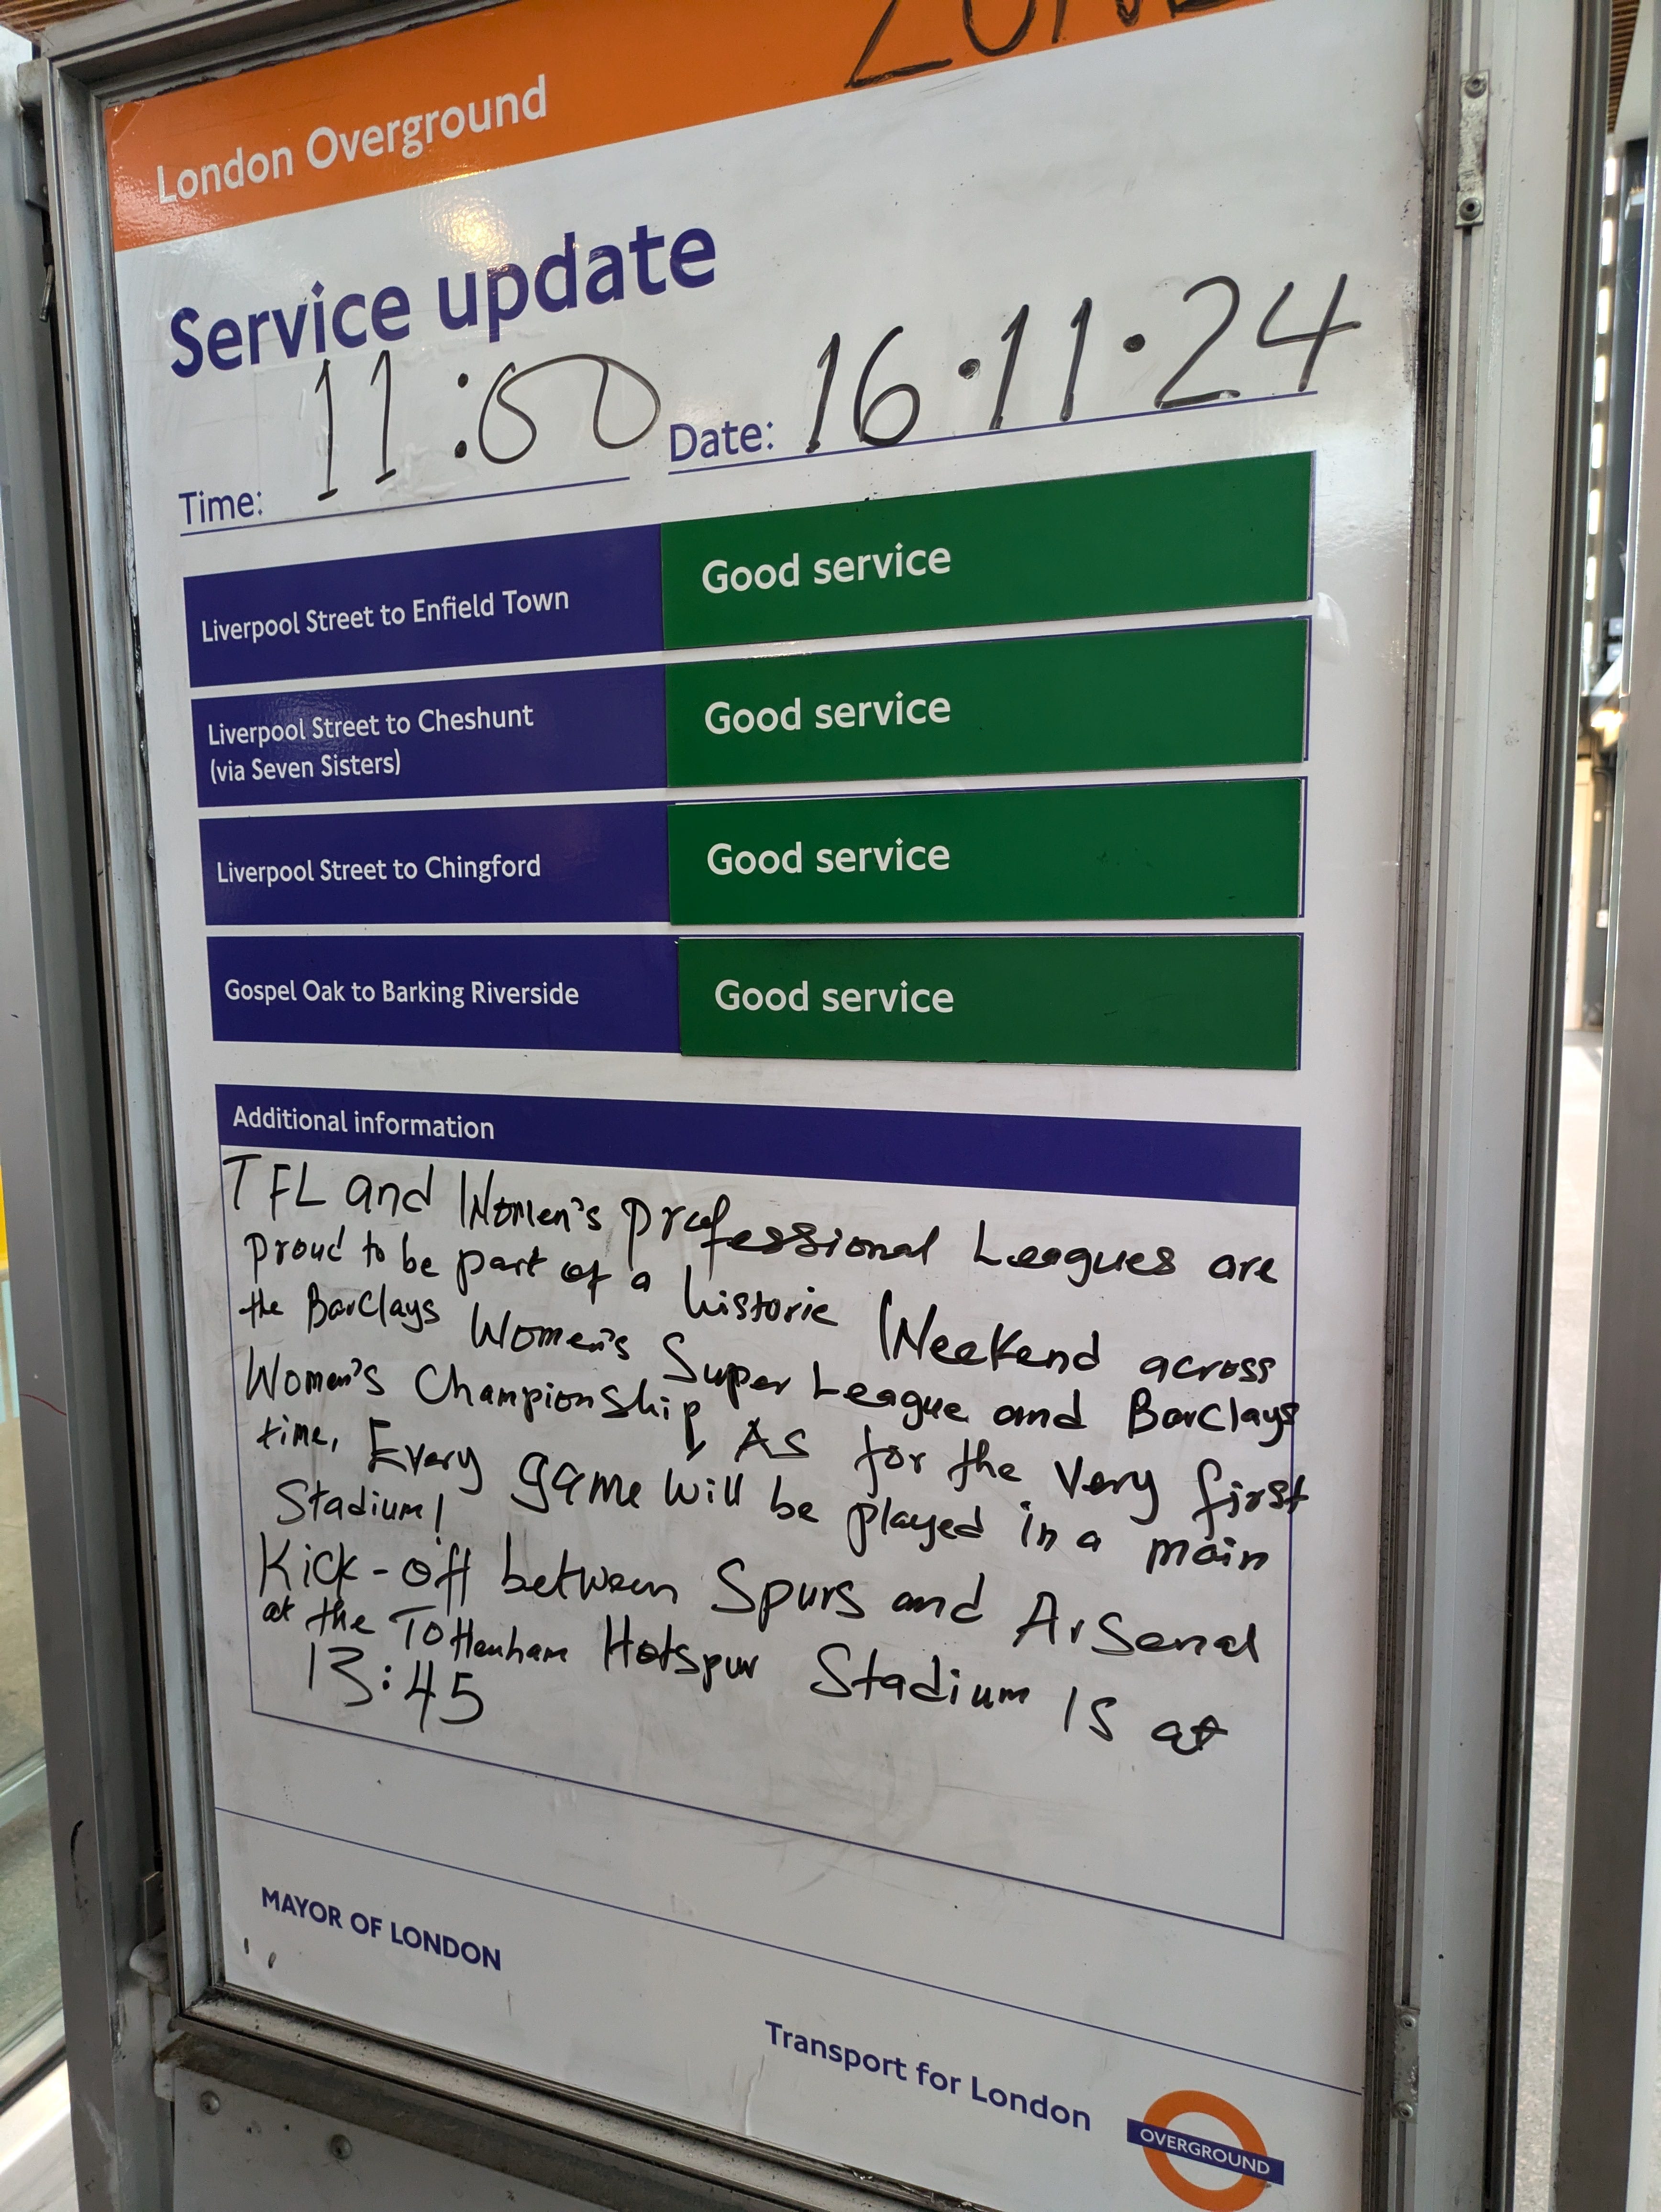 London Overground
Service update
Time: 11:00 Date: 16.11.24
Liverpool Street to Enfield Town Good service
Liverpool Street to Cheshunt
(via Seven Sisters) Good service
Liverpool Street to Chingford Good service
Gospel Oak to Barking Riverside Good service
Additional information
TFL and Women's Professional Leagues are
proud to be part of a historic Weekend across
the Barclays Women's Super League and Barclays
Women's Championship, As for the very first
time, Every game will be played in a main
Stadium!
Kick-off between Spurs and Arsenal
at the Tottenham Hotspur Stadium is at
13:45
MAYOR OF LONDON
Transport for London
OVERGROUND